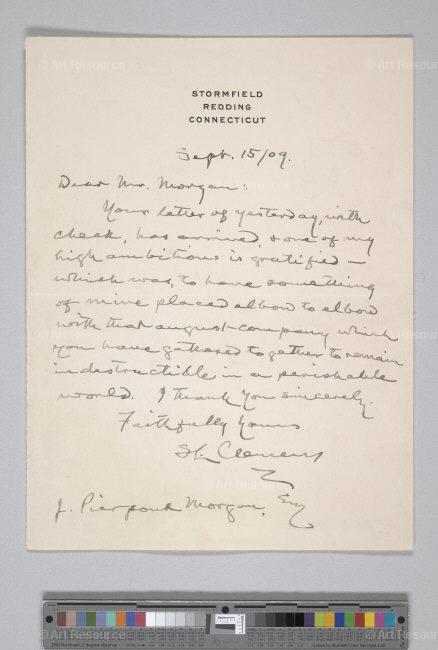 STORMFIELD
REDDING
CONNECTICUT
Sept. 15/09.
Dear Mr. Morgan:
Your letter of yesterday, with
check, has arrived, & one of my
high ambitions is gratified —
which was, to have something
of mine placed elbow to elbow
with that august company which
you have gathered together to remain
indestructible in a perishable
world. I thank you sincerely.
Faithfully Yours
SL. Clemens
J. Pierpont Morgan, Esq
© Art Resource